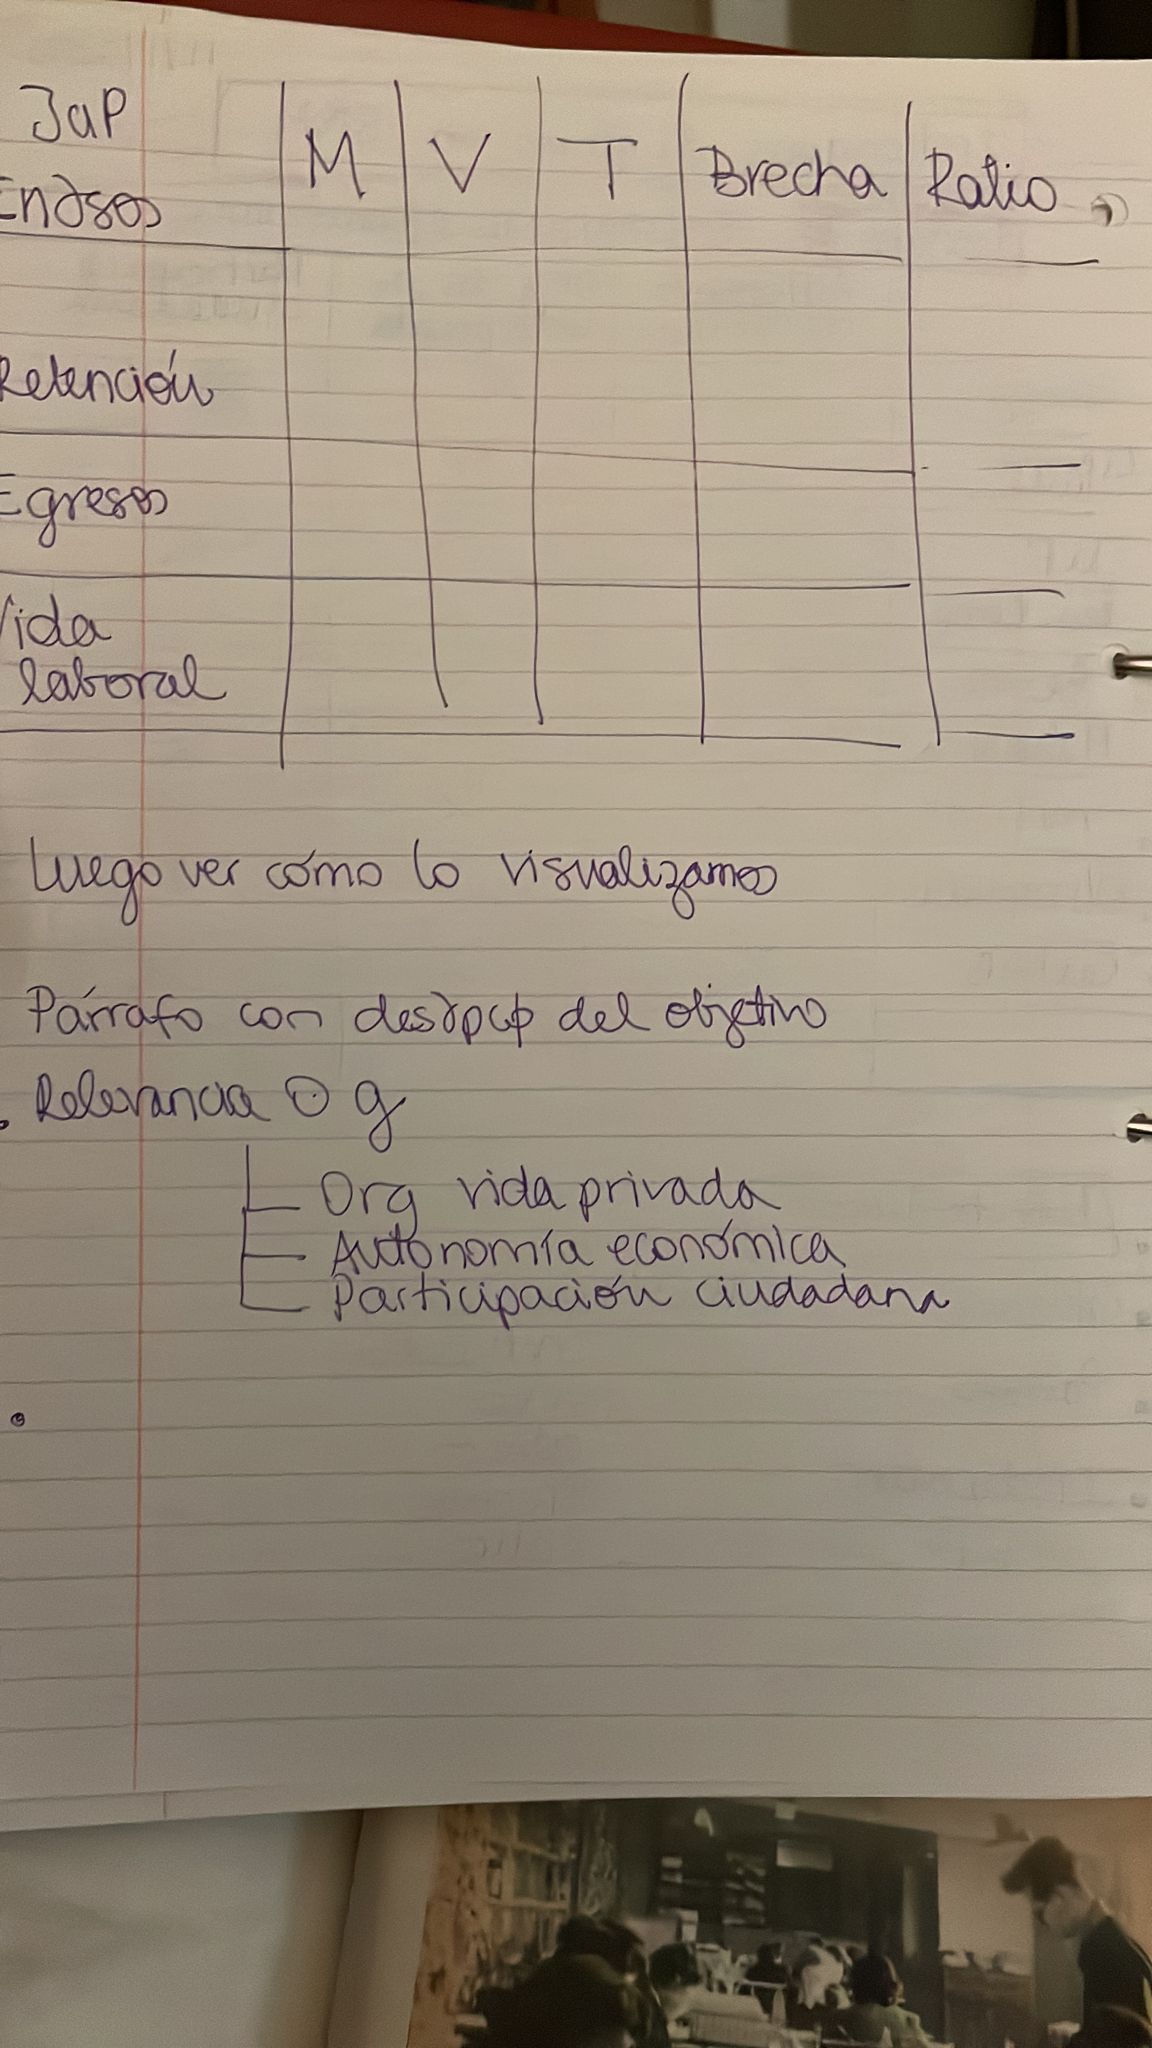 JaP
M V T Brecha Ratio
Retención
Egresos
Vida
laboral
Luego ver cómo lo visualizamos
Párrafo con del objetivo
Relevancia g
Org vida privada
Autonomía económica
Participación ciudadana